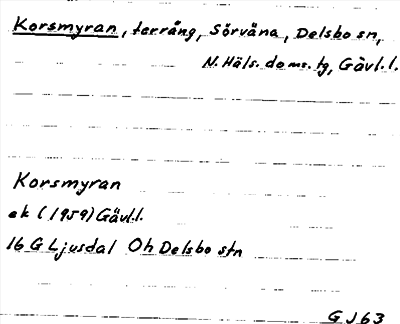 Korsmyran, terräng, Sörväna, Delsbo sn,
N. Häls. doms. tg, Gävl. l.
Korsmyran
ek (1959) Gävl.l.
16 G Ljusdal Oh Delsbo stn
GJ63